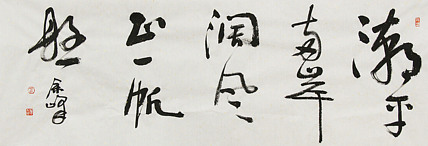 潮平
两岸
阔风
正一帆
悬
金峰